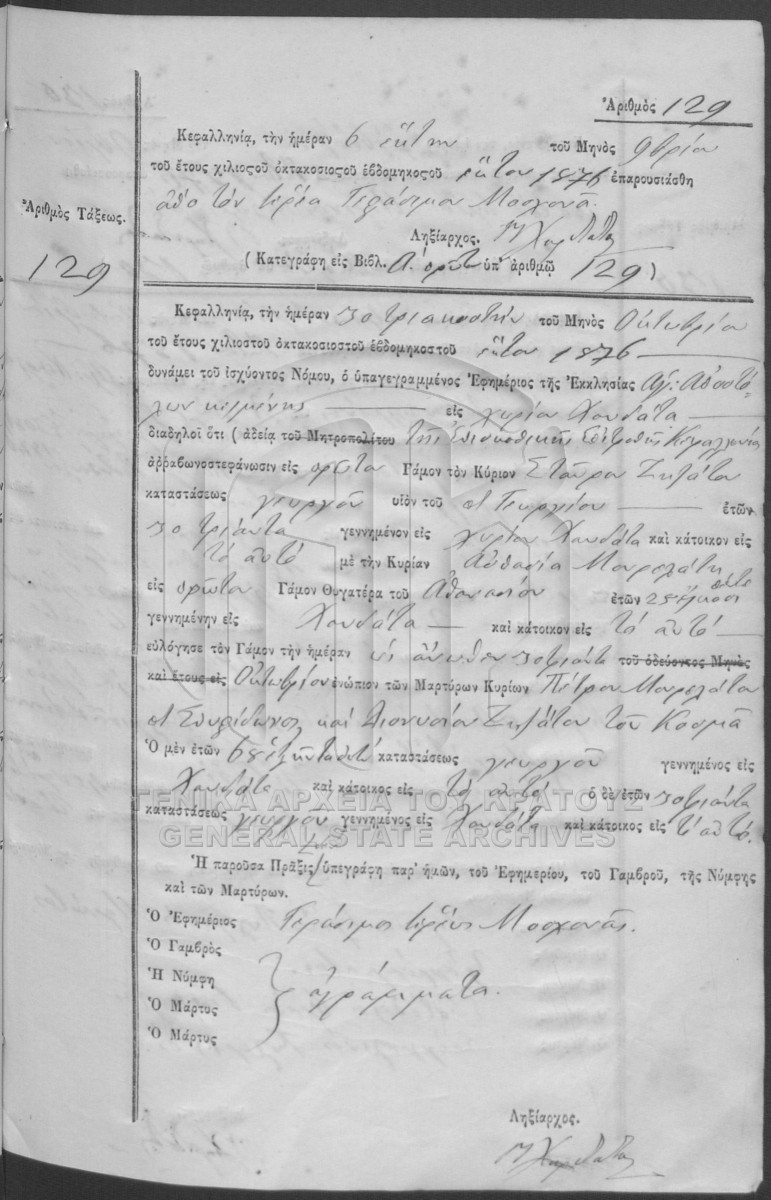 Ἀριθμὸς 129
Κεφαλληνίᾳ, τὴν ἡμέραν 6 ἕκτην τοῦ Μηνὸς 9βρίου
τοῦ ἔτους χιλιοςοῦ ὀκτακοσιοςοῦ ἑβδομηκοςοῦ ἕκτου 1876 ἐπαρουσιάσθη
ἀπὸ τὸν ἱερέα Γεράσιμον Μοσχονᾶ.
Ἀριθμὸς Τάξεως.
129
Ληξίαρχος.
( Κατεγράφη εἰς Βιβλ. Α. πρῶτ ὑπ' ἀριθμῷ 129 )
Κεφαλληνίᾳ, τὴν ἡμέραν 30 τριακοστὴν τοῦ Μηνὸς Ὀκτωβρίου
τοῦ ἔτους χιλιοστοῦ ὀκτακοσιοστοῦ ἑβδομηκοστοῦ ἕκτου 1876
δυνάμει τοῦ ἰσχύοντος Νόμου, ὁ ὑπαγεγραμμένος Ἐφημέριος τῆς Ἐκκλησίας Ἁγ: Ἀποστό-
λων κειμένης εἰς χωρίον Χαυδάτα
διαδηλοῖ ὅτι ( ἀδείᾳ τοῦ Μητροπολίτου τῆς Ἐπισκοπικῆς Ἐπιτροπῆς Κεφαλληνίας
ἀῤῥαβωνοστεφάνωσιν εἰς πρῶτον Γάμον τὸν Κύριον Σταῦρον Ζηζάτον
καταστάσεως γεωργοῦ υἱὸν τοῦ Γεωργίου ἐτῶν
30 τριάντα γεννημένον εἰς χωρίον Χαυδάτα καὶ κάτοικον εἰς
τὸ αὐτό μὲ τὴν Κυρίαν Ἀσπασία Μωρελάτη
εἰς πρῶτον Γάμον Θυγατέρα τοῦ Ἀθανασίου ἐτῶν 25 εἴκοσι πέντε
γεννημένην εἰς Χαυδάτα καὶ κάτοικον εἰς τὸ αὐτό
εὐλόγησε τὸν Γάμον τὴν ἡμέραν ὡς ἄνωθεν 30 τριάντα τοῦ ὁδεύοντος Μηνὸς
καὶ ἔτους εἰς Ὀκτωβρίου ἐνώπιον τῶν Μαρτύρων Κυρίων Πέτρον Μωρελάτον
Σπυρίδωνος καὶ Διονυσίου Ζηζάτου τοῦ Κοσμᾶ
Ὁ μὲν ἐτῶν καταστάσεως γεωργοῦ γεννημένος εἰς
Χαυδάτα καὶ κάτοικος εἰς τὸ αὐτό ὁ δὲ ἐτῶν 30 τριάντα
καταστάσεως γεωργοῦ γεννημένος εἰς Χαυδάτα καὶ κάτοικος εἰς τ' αὐτό.
ΓΕΝΙΚΑ ΑΡΧΕΙΑ ΤΟΥ ΚΡΑΤΟΥΣ
GENERAL STATE ARCHIVES
Ἡ παροῦσα Πρᾶξις ὑπεγράφη παρ' ἡμῶν, τοῦ Ἐφημερίου, τοῦ Γαμβροῦ, τῆς Νύμφης
καὶ τῶν Μαρτύρων.
Ὁ Ἐφημέριος Γεράσιμος ἱερεὺς Μοσχονᾶς.
Ὁ Γαμβρὸς
Ἡ Νύμφη
ἀγράμματα.
Ὁ Μάρτυς
Ὁ Μάρτυς
Ληξίαρχος.